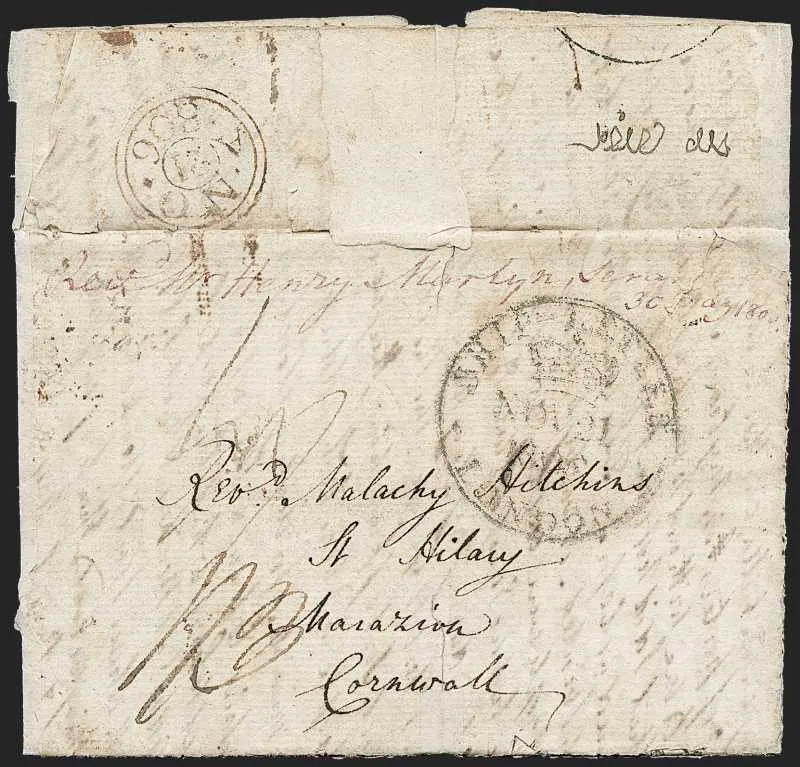 A. NO 21 806
Rev.d Mr Henry Martyn,
30
SHIP LETTER
NOV 21
LONDON
Rev.d Malachy Hitchins
St Hilary
Marazion
Cornwall